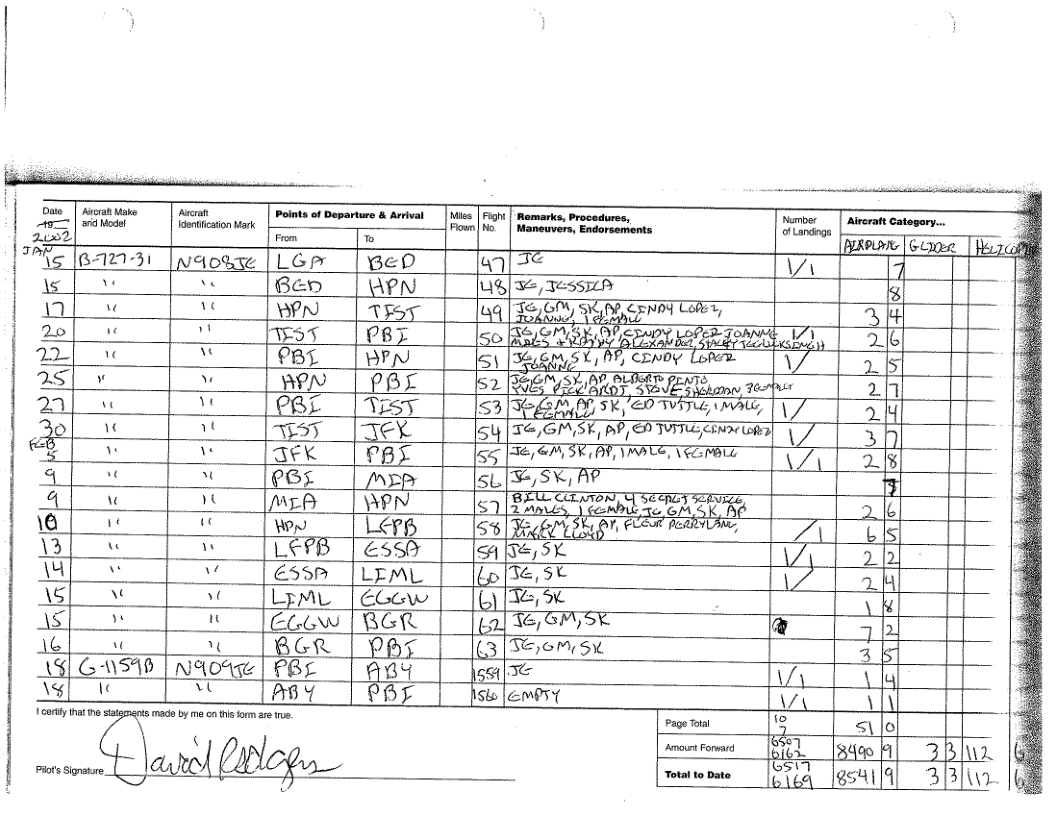 Date Aircraft Make and Model Aircraft Identification Mark Points of Departure & Arrival Miles Flown Flight No. Remarks, Procedures, Maneuvers, Endorsements Number of Landings Aircraft Category...
19 2002 From To AIRPLANE GLIDER HELICOPTER
JAN
15 B-727-31 N908JE LGA BED 47 JE 1/1 7
15 " " BED HPN 48 JE, JESSICA 8
17 " " HPN TIST 49 JE, GM, SK, AP CINDY LOPEZ, JOANNE, 1 FEMALE 3 4
20 " " TIST PBI 50 JE, GM, SK, AP CINDY LOPEZ JOANNE 1/1 2 6
ALEXANDER,
22 " " PBI HPN 51 JE, GM, SK, AP, CINDY LOPEZ JOANNE 1/ 2 5
25 " " HPN PBI 52 JE, GM, SK, AP, ALBERTO PINTO
YVES PICKARDT, STEVE SHERIDAN, 3 FEMALES 2 7
27 " " PBI TIST 53 JE, GM, AP, SK, ED TUTTLE, 1 MALE, 1 FEMALE 1/ 2 4
30 " " TIST JFK 54 JE, GM, SK, AP, ED TUTTLE, CINDY LOPEZ 1/ 3 7
FEB
5 " " JFK PBI 55 JE, GM, SK, AP, 1 MALE, 1 FEMALE 1/1 2 8
9 " " PBI MIA 56 JE, SK, AP
9 " " MIA HPN 57 BILL CLINTON, 4 SECRET SERVICE,
2 MALES, 1 FEMALE JE, GM, SK, AP 2 6
10 " " HPN LFPB 58 JE, GM, SK, AP, FLEUR PERRYLANE,
MARK LLOYD /1 6 5
13 " " LFPB ESSA 59 JE, SK 1/1 2 2
14 " " ESSA LIML 60 JE, SK 1/ 2 4
15 " " LIML EGGW 61 JE, SK 1 8
15 " " EGGW BGR 62 JE, GM, SK 7 2
16 " " BGR PBI 63 JE, GM, SK 3 5
18 G-1159B N909JE PBI ABY 1559 JE 1/1 1 4
18 " " ABY PBI 1560 EMPTY 1/1 1 1
I certify that the statements made by me on this form are true.
Page Total 10 7 51 0
Amount Forward 6507 6162 8490 9 3 3 112 6
Pilot's Signature David Rodgers
Total to Date 6517 6169 8541 9 3 3 112 6